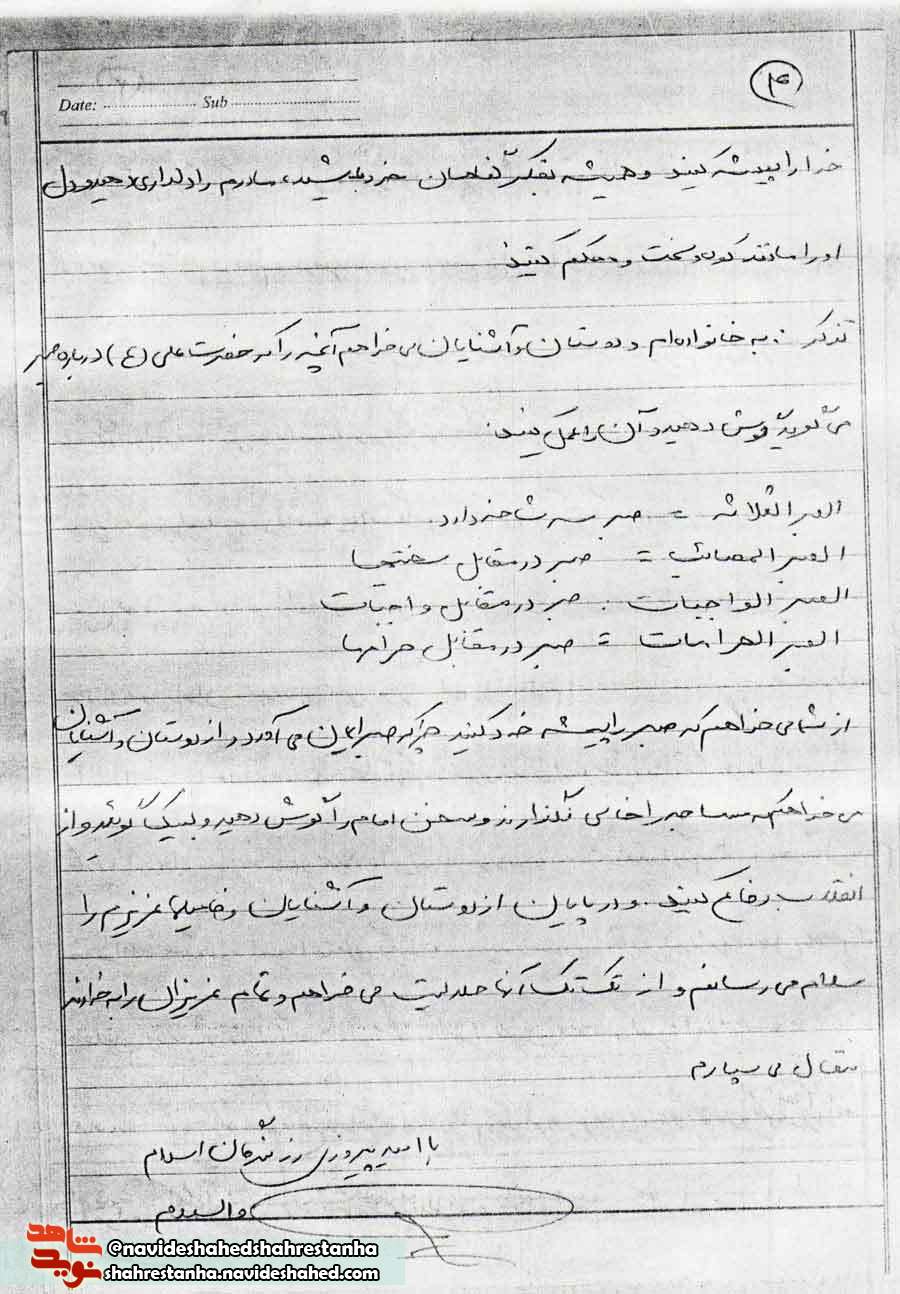 ۴
Date: ........................ Sub ................................
خدا را پیشه کنید و همیشه بفکر گناهان خود باشید، مادرم را دلداری دهید و دل
او را مانند کوه سخت و محکم کنید.
تذکر: به خانواده‌ام و دوستان و آشنایان می خواهم آنچه را که حضرت علی (ع) درباره صبر
می گوید گوش دهید و آن را عمل کنید.
الصبر الثلاثه = صبر سه شاخه دارد.
الصبر المصائب = صبر در مقابل سختیها
الصبر الواجبات . صبر در مقابل واجبات
الصبر الحرامات = صبر در مقابل حرامها
از شما می خواهم که صبر را پیشه خود کنید چرا که صبر ایمان می آورد و از دوستان و آشنایان
می خواهم که را خالی نگذارند و سخن امام را گوش دهید و لبیک گوئید و از
انقلاب دفاع کنید. و در پایان از دوستان و آشنایان و فامیلها عزیزم را
سلام می رسانم و از تک تک آنها حلالیت می خواهم و تمام عزیزان را به خداوند
متعال می سپارم
با امید پیروزی رزمندگان اسلام
والسلام
شاهد
نوید
@navideshahedshahrestanha
shahrestanha.navideshahed.com